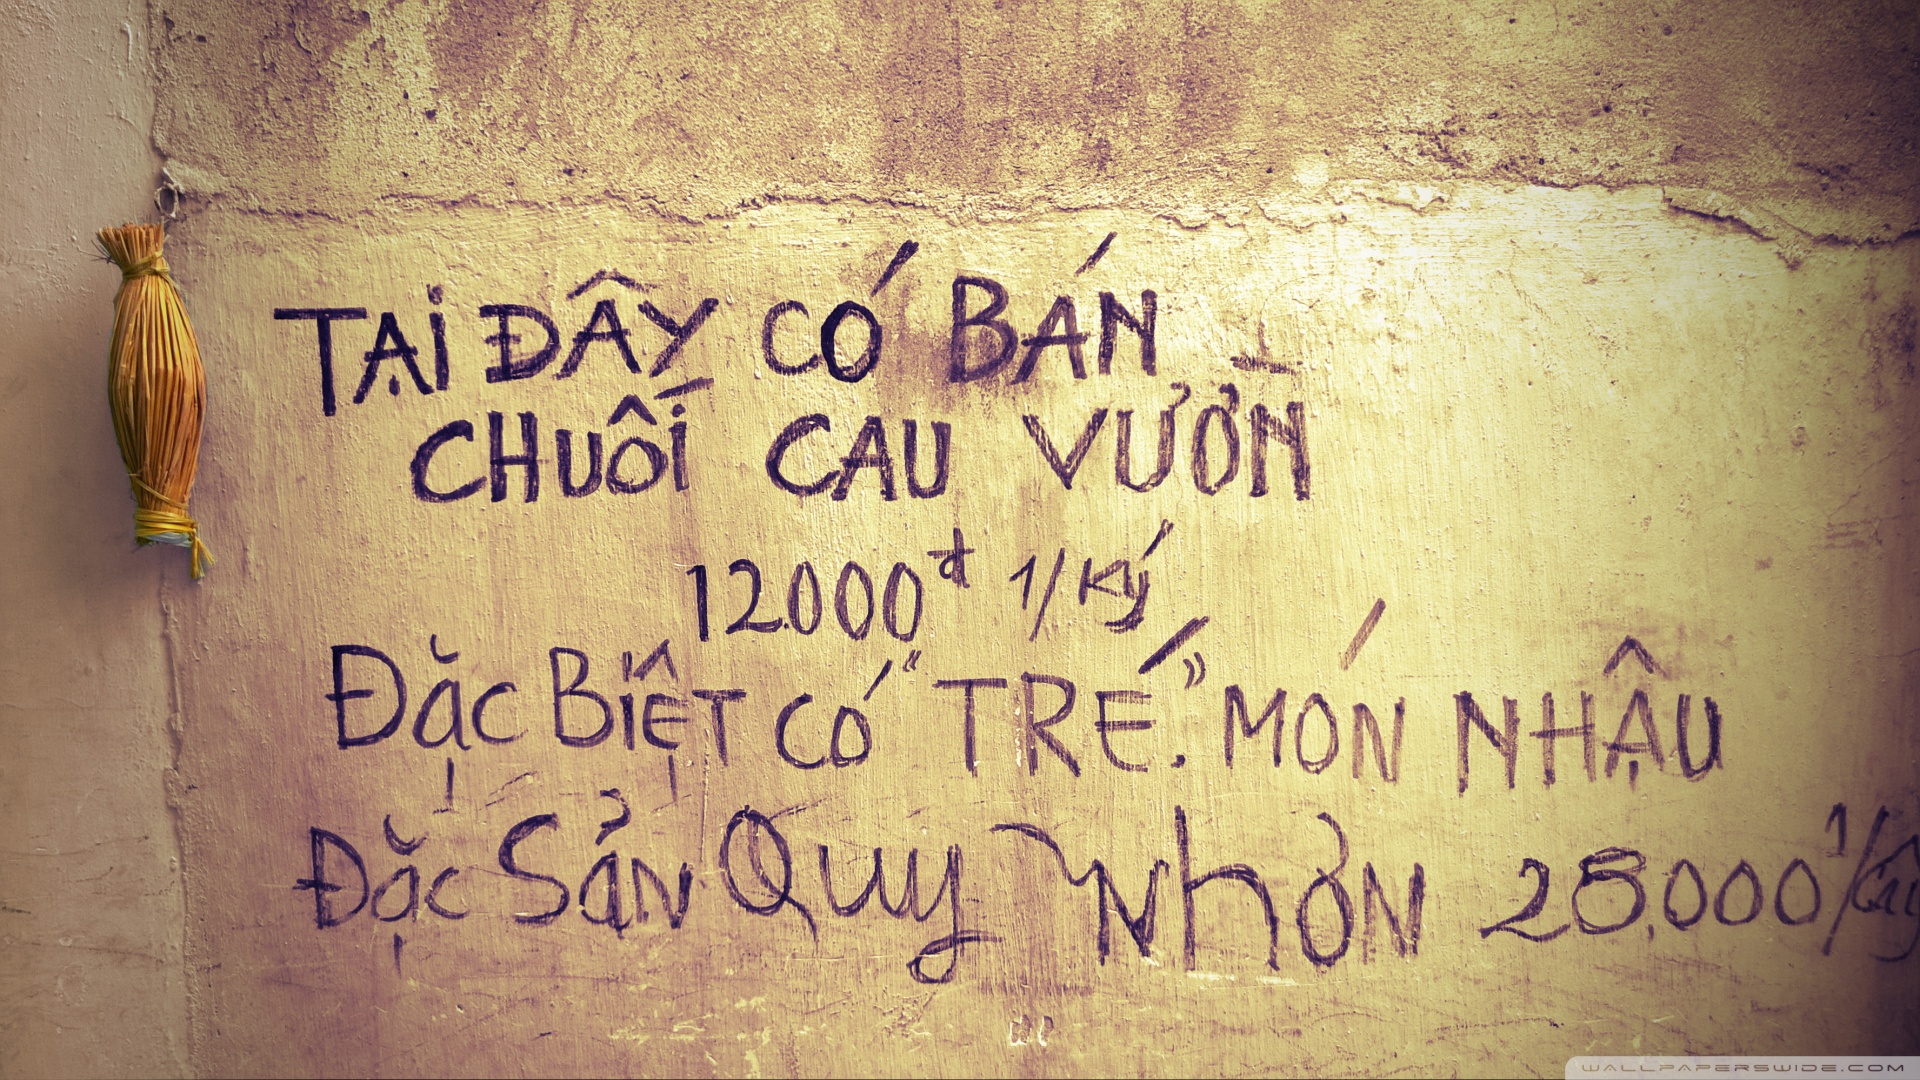 TẠI ĐÂY CÓ BÁN
CHUỐI CAU VƯỜN
12.000đ 1/Ký
ĐẶC BIỆT CÓ "TRÉ." MÓN NHẬU
ĐẶC SẢN QUY NHƠN 28.000 1/
WALLPAPERSWIDE.COM